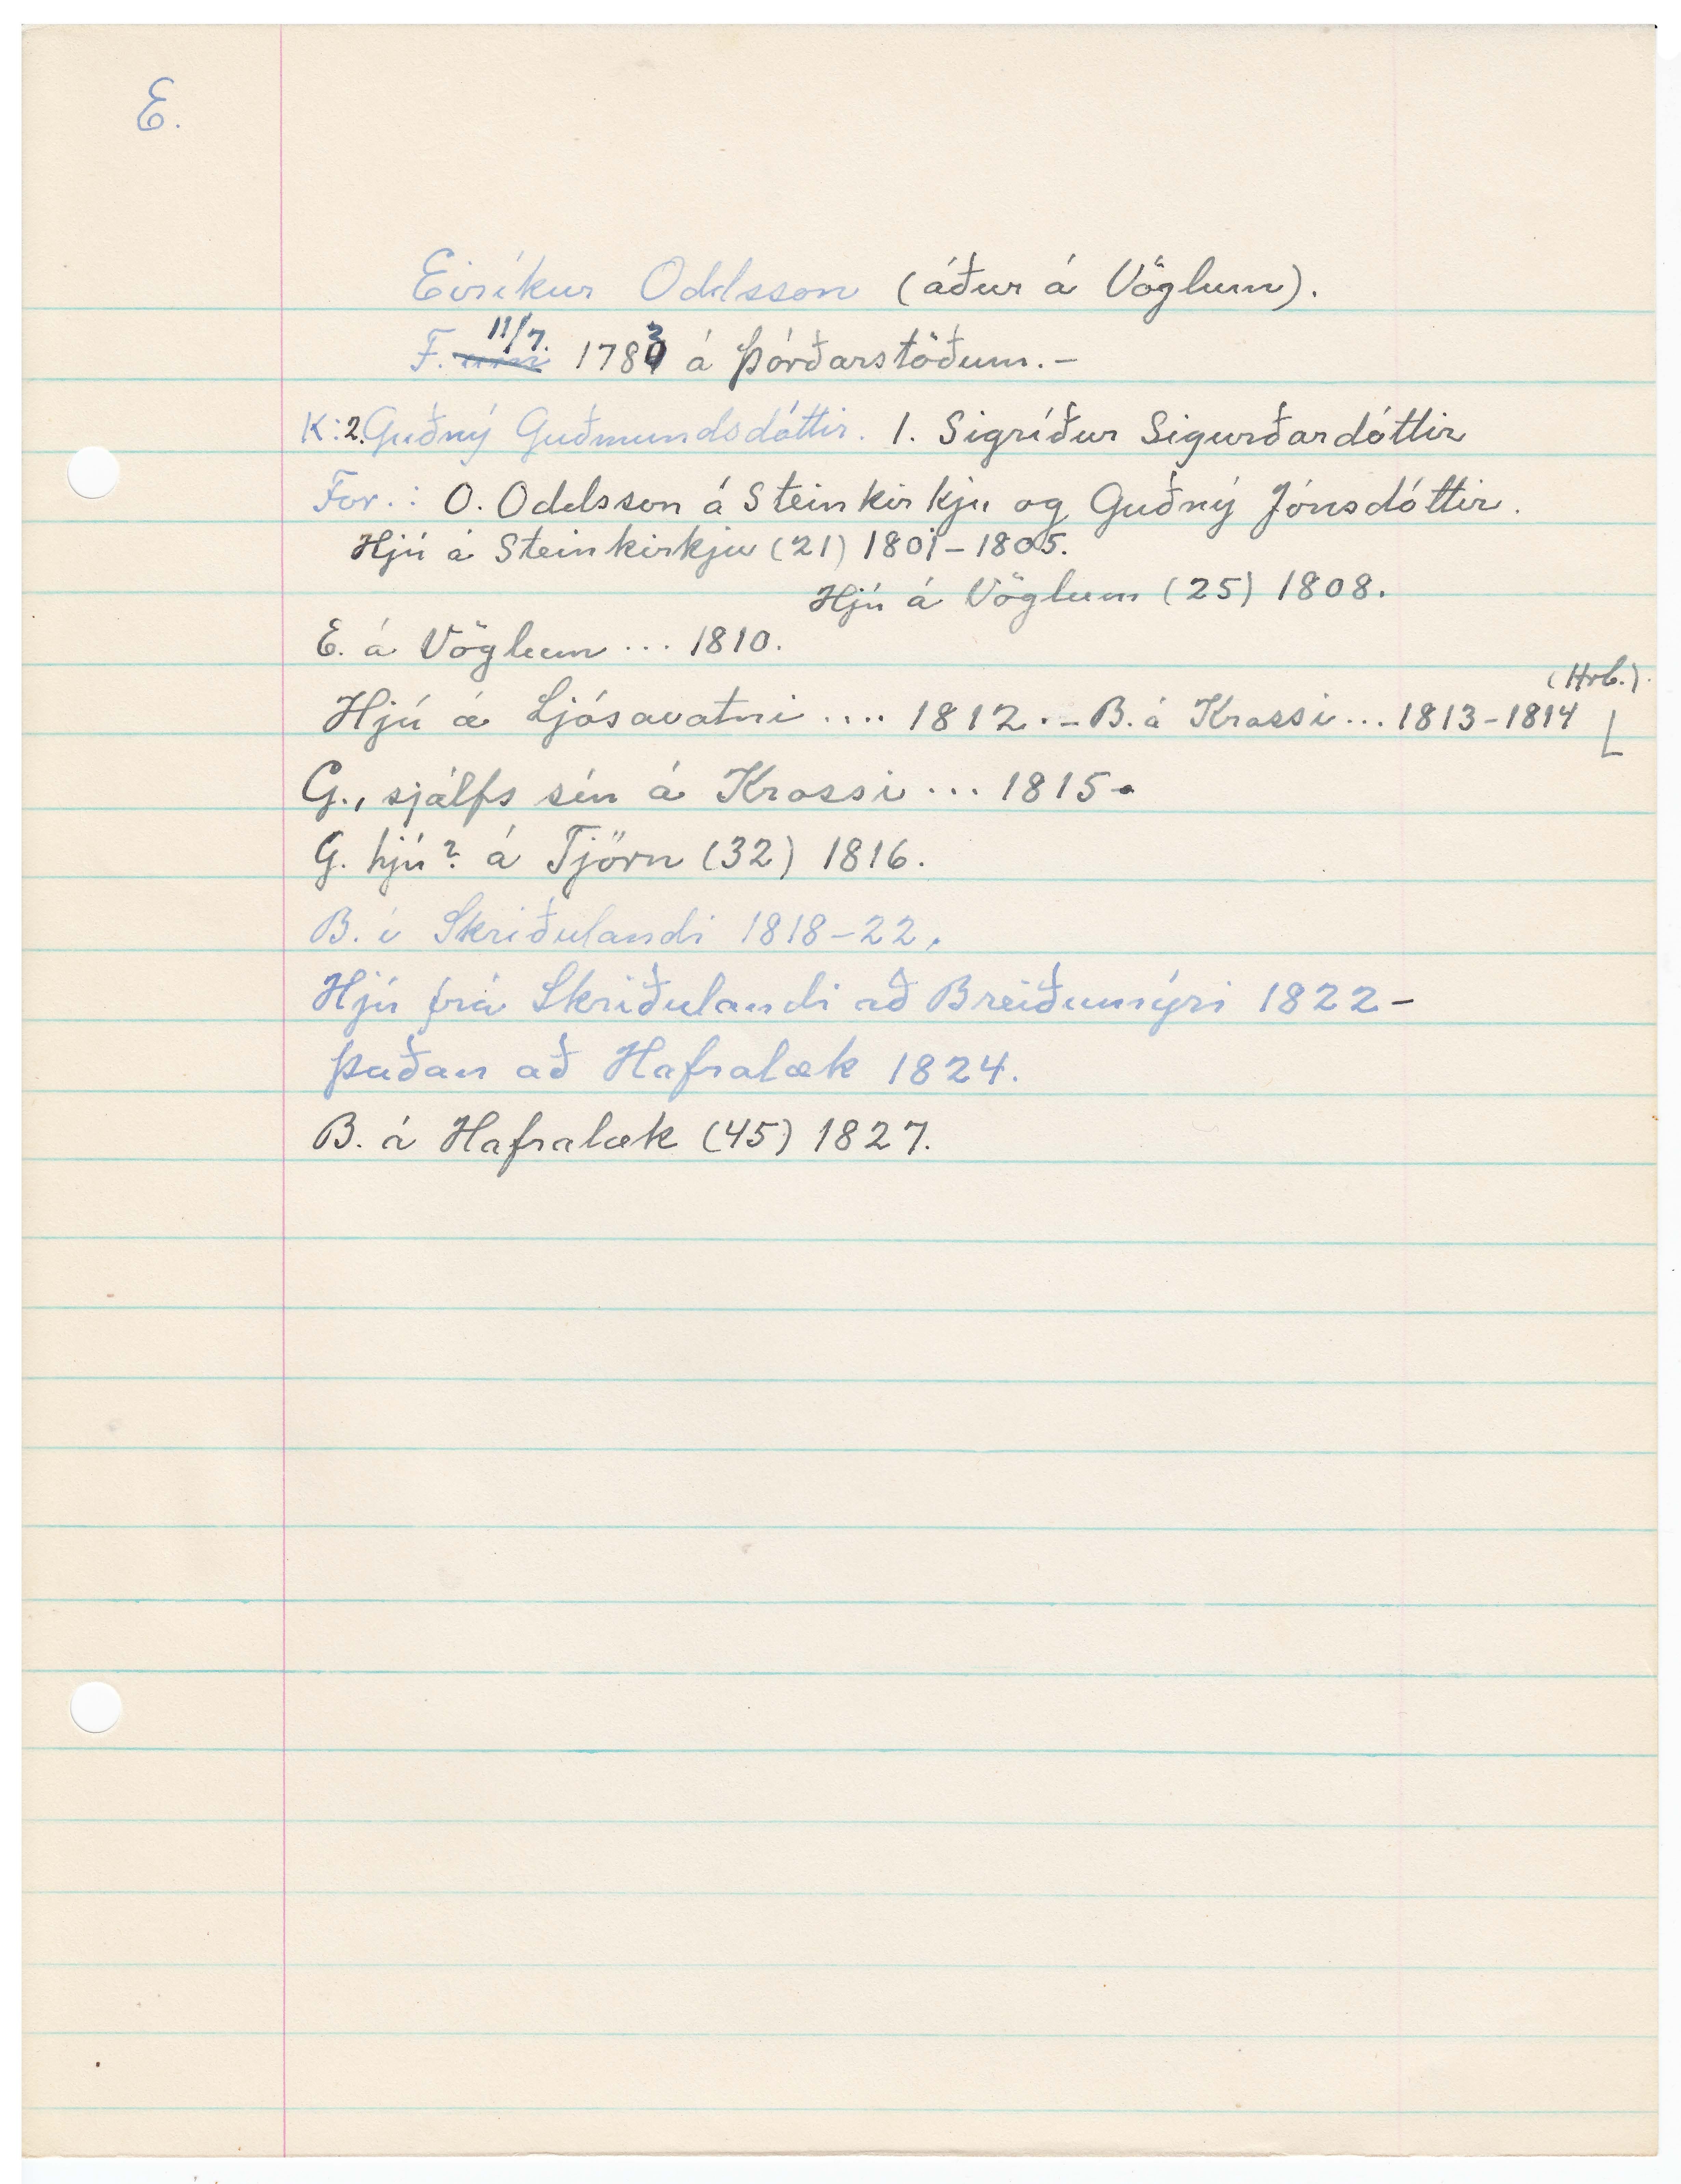 E.
Eiríkur Oddsson (áður á Vöglum).
F. 11/7. 1783 á Þórðarstöðum.-
K: 2. Guðný Guðmundsdóttir. 1. Sigríður Sigurðardóttir
For.: O. Oddsson á Steinkirkju og Guðný Jónsdóttir.
Hjú á Steinkirkju (21) 1801-1805.
Hjú á Vöglum (25) 1808.
E. á Vöglum ... 1810.
(Hrb.).
Hjú á Ljósavatni .... 1812.- B. á Krossi ... 1813-1814
G., sjálfs sín á Krossi ... 1815.
G. hjú? á Tjörn (32) 1816.
B. í Skriðulandi 1818-22.
Hjú frá Skriðulandi að Breiðumýri 1822-
þaðan að Hafralæk 1824.
B. á Hafralæk (45) 1827.